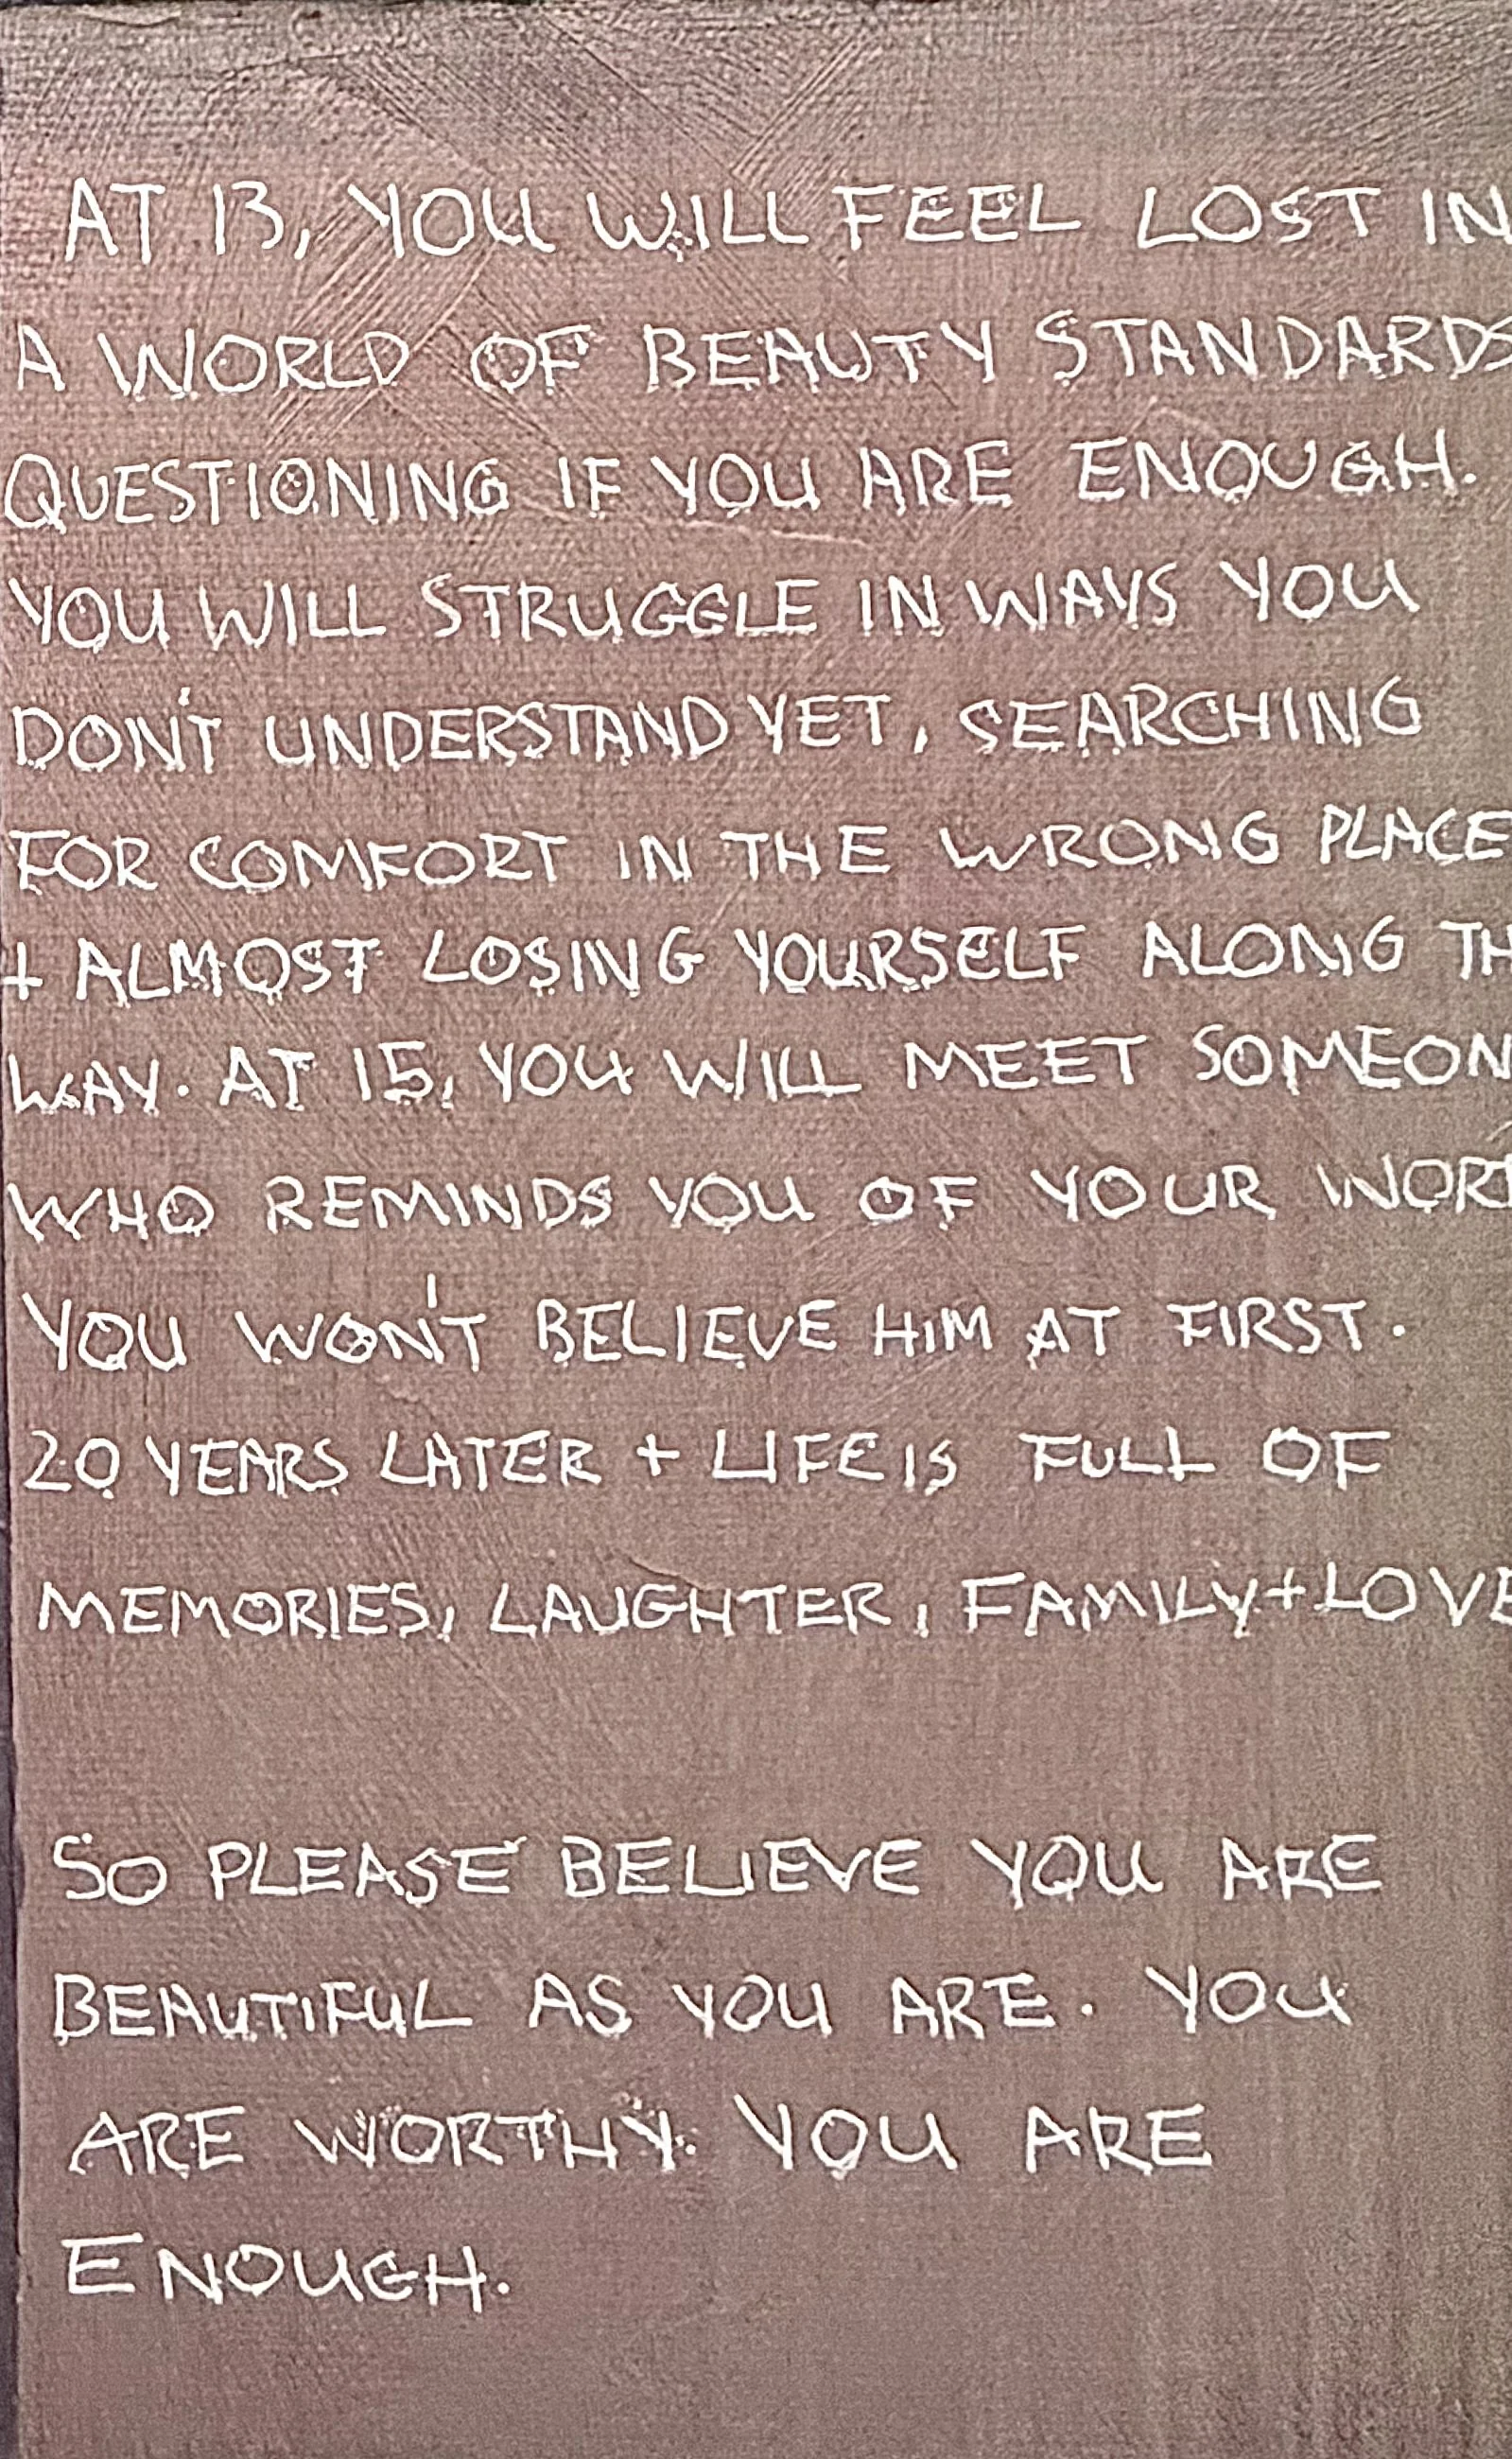 AT 13, YOU WILL FEEL LOST IN
A WORLD OF BEAUTY STANDARDS
QUESTIONING IF YOU ARE ENOUGH.
YOU WILL STRUGGLE IN WAYS YOU
DON'T UNDERSTAND YET, SEARCHING
FOR COMFORT IN THE WRONG PLACE
+ ALMOST LOSING YOURSELF ALONG TH
WAY. AT 15, YOU WILL MEET SOMEON
WHO REMINDS YOU OF YOUR WORT
YOU WON'T BELIEVE HIM AT FIRST.
20 YEARS LATER + LIFE IS FULL OF
MEMORIES, LAUGHTER, FAMILY + LOVE
SO PLEASE BELIEVE YOU ARE
BEAUTIFUL AS YOU ARE. YOU
ARE WORTHY. YOU ARE
ENOUGH.